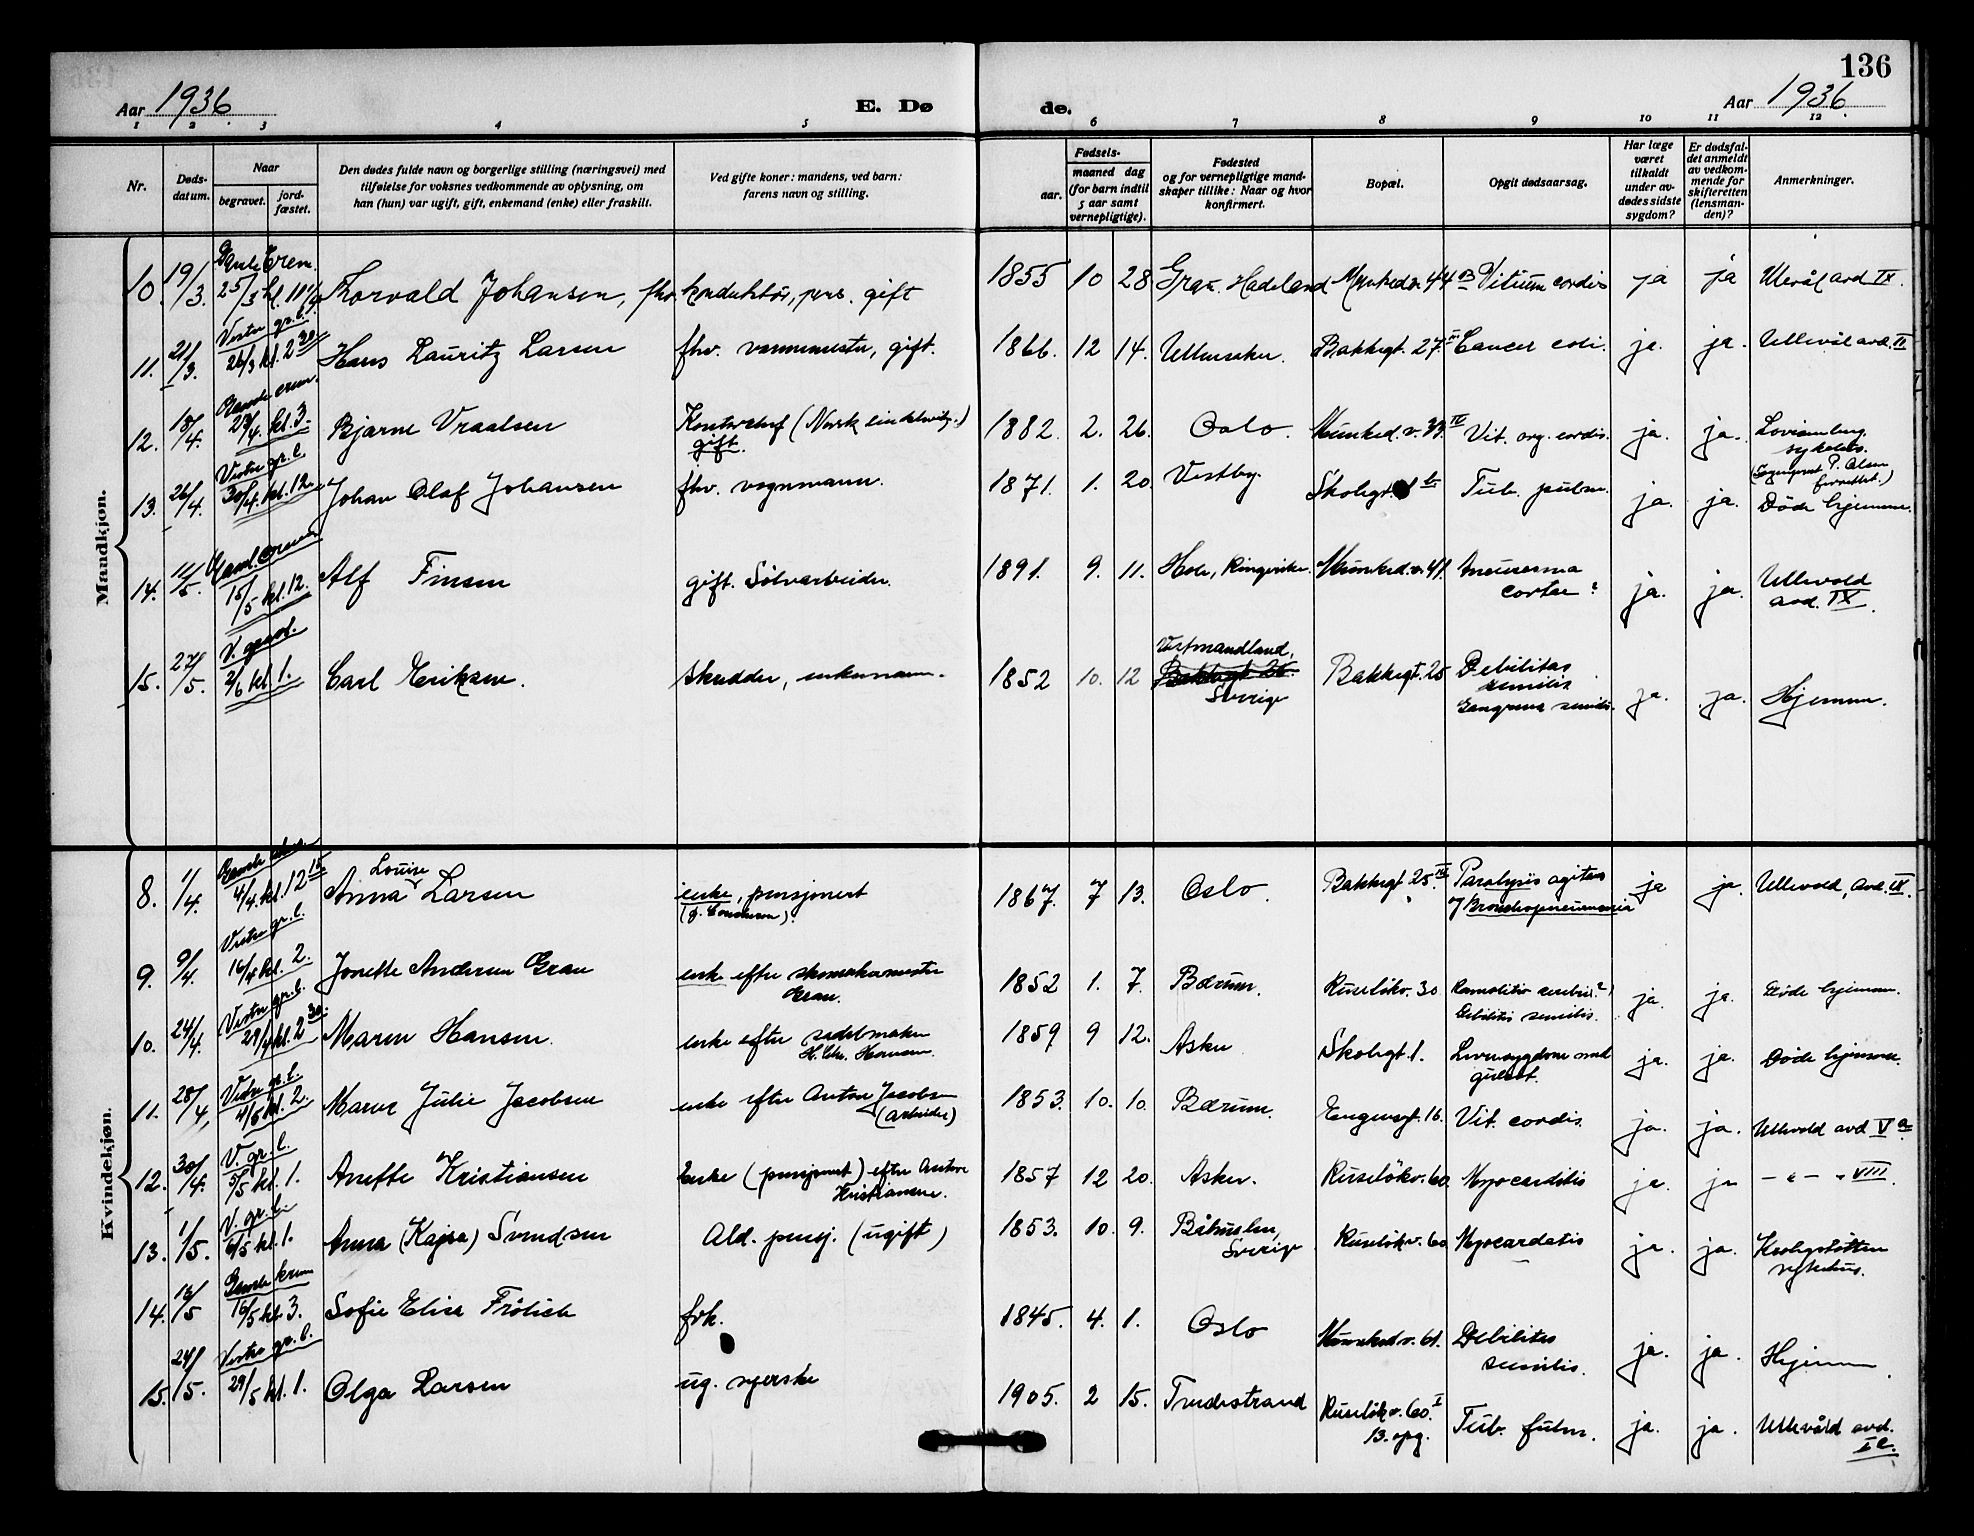 136
Aar 1936
E. Dø
de.
Aar 1936.
1 2 3 4 5 6 7 8 9 10 11 12
Nr.
Døds-
datum.
Naar
begravet.
jord-
fæstet.
Den dødes fulde navn og borgerlige stilling (næringsvei) med
tilføielse for voksnes vedkommende av oplysning, om
han (hun) var ugift, gift, enkemand (enke) eller fraskilt.
Ved gifte koner: mandens, ved barn:
farens navn og stilling.
Fødsels-
aar.
maaned dag
(for barn indtil
5 aar samt
vernepligtige).
Fødested
og for vernepligtige mand-
skaper tillike: Naar og hvor
konfirmert.
Bopæl.
Opgit dødsaarsag.
Har læge
været
tilkaldt
under av-
dødes sidste
sygdom?
Er dødsfal-
det anmeldt
av vedkom-
mende for
skifteretten
(lensman-
den)?
Anmerkninger.
Mandkjøn.
10. 19/3. Gamle Crem. 25/3 kl. 11 1/2 Torvald Johansen, fhv. konduktør, pens. gift 1855 10 28 Gran. Hadeland Munkedv. 44 Vitium cordis ja ja Ulevål avd IX.
11. 21/3. Vestre gr.l. 26/3 kl. 2 30 Hans Lauritz Larsen fhv. varmemester, gift. 1866. 12 14. Ullensaker. Bakkegt. 27 II Cancer coli. ja. ja. Ullevål avd. II
12. 18/4. Gamle crem. 23/4. kl. 3. Bjarne Vraalsen Kontorchef (Norsk )
gift. 1882. 2. 26. Oslo. Munked.v. 39. IV Vit. org. cordis. ja. ja. Lovisenberg
sykehus.
(Sogneprest P. Olsen
forrettet.)
13. 26/4. Vestre gr.l. 30/4. kl. 12. Johan Olaf Johansen fhv. vognmann. 1871. 1. 20. Vestby. Skolegt. Tub. pulm. ja. ja. Døde hjemme.
14. 11/5. Gaml. crem. 15/5 kl. 12. Alf Finsen gift. Sølvarbeider. 1891. 9. 11. Hole, Ringerike. Munkedv. 41. Aneurisma
aortae? ja. ja. Ullevold
avd. IX.
15. 27/5. V. gravl. 2/6 kl. 1. Carl Eriksen. skredder, enkemann. 1852 10. 12 Vestmandland,
Bakkegt 25.
Sverige Bakkegt. 25 Debilitas
senilis
Gangrena senilis. ja. ja. Hjemme.
Kvindekjøn.
8. 1/4. Gamle krem. 4/4. kl. 12 15 Anna Louise Larsen enke, pensjonert
1867. 7 13. Oslo. Bakkegt 25. IV Paralysis agitans
Bronchopneumonia ja ja. Ullevold, avd. IX.
9. 9/4. Vestre gr.l. 16/4 kl. 2. Jonette Andersen Grau enke efter skomakermester
Grau. 1852 1. 7. Bærum. Ruseløkv. 30 Ramolitio cerebri?
Debilitas senilis. ja. ja. Døde hjemme.
10. 24/4. Vestre gr.l. 29/4 kl. 2 30. Maren Hansen. enke efter sadelmaker
H. Chr. Hansen. 1859 9 12. Asker Skolegt 1. Leversygdom med
gulsot. ja. ja. Døde hjemme.
11. 28/4. Vestre gr.l. 4/5 kl. 2. Maren Julie Jacobsen enke efter Anton Jacobsen
(arbeider) 1853. 10. 10. Bærum. Engensgt. 16. Vit. cordis. ja. ja. Ullevold avd V a
12. 30/4. V. gr.l. 5/5 kl. 1. Anette Kristiansen Enke (pensjonert) efter Anton
Kristiansen. 1857 12 20. Asker. Ruseløkv. 60. Myocarditis ja. ja — " — " VIII.
13. 1/5. V. gr.l. 6/5 kl. 1. Anna (Kajsa) Svendsen Ald. pensj. (ugift) 1853. 10. 9. Båhuslen,
Sverige Ruseløkv. 60 Myocardatis ja. ja. Krohgstøtten
sykehus.
14. 12/5 Gamle krem 16/5 kl 3. Sofie Elise Frölich frk. 1845. 4. 1. Oslo Munkedv. 61. Debilitas
senilis. ja. ja. Hjemme
15. 24/5. Vestre gr.l. 29/5 kl. 1. Olga Larsen ug. syerske 1905. 2 15. Tvedestrand Ruseløkv. 60. I
13. opg. Tub. pulm. ja. ja. Ullevåld avd.